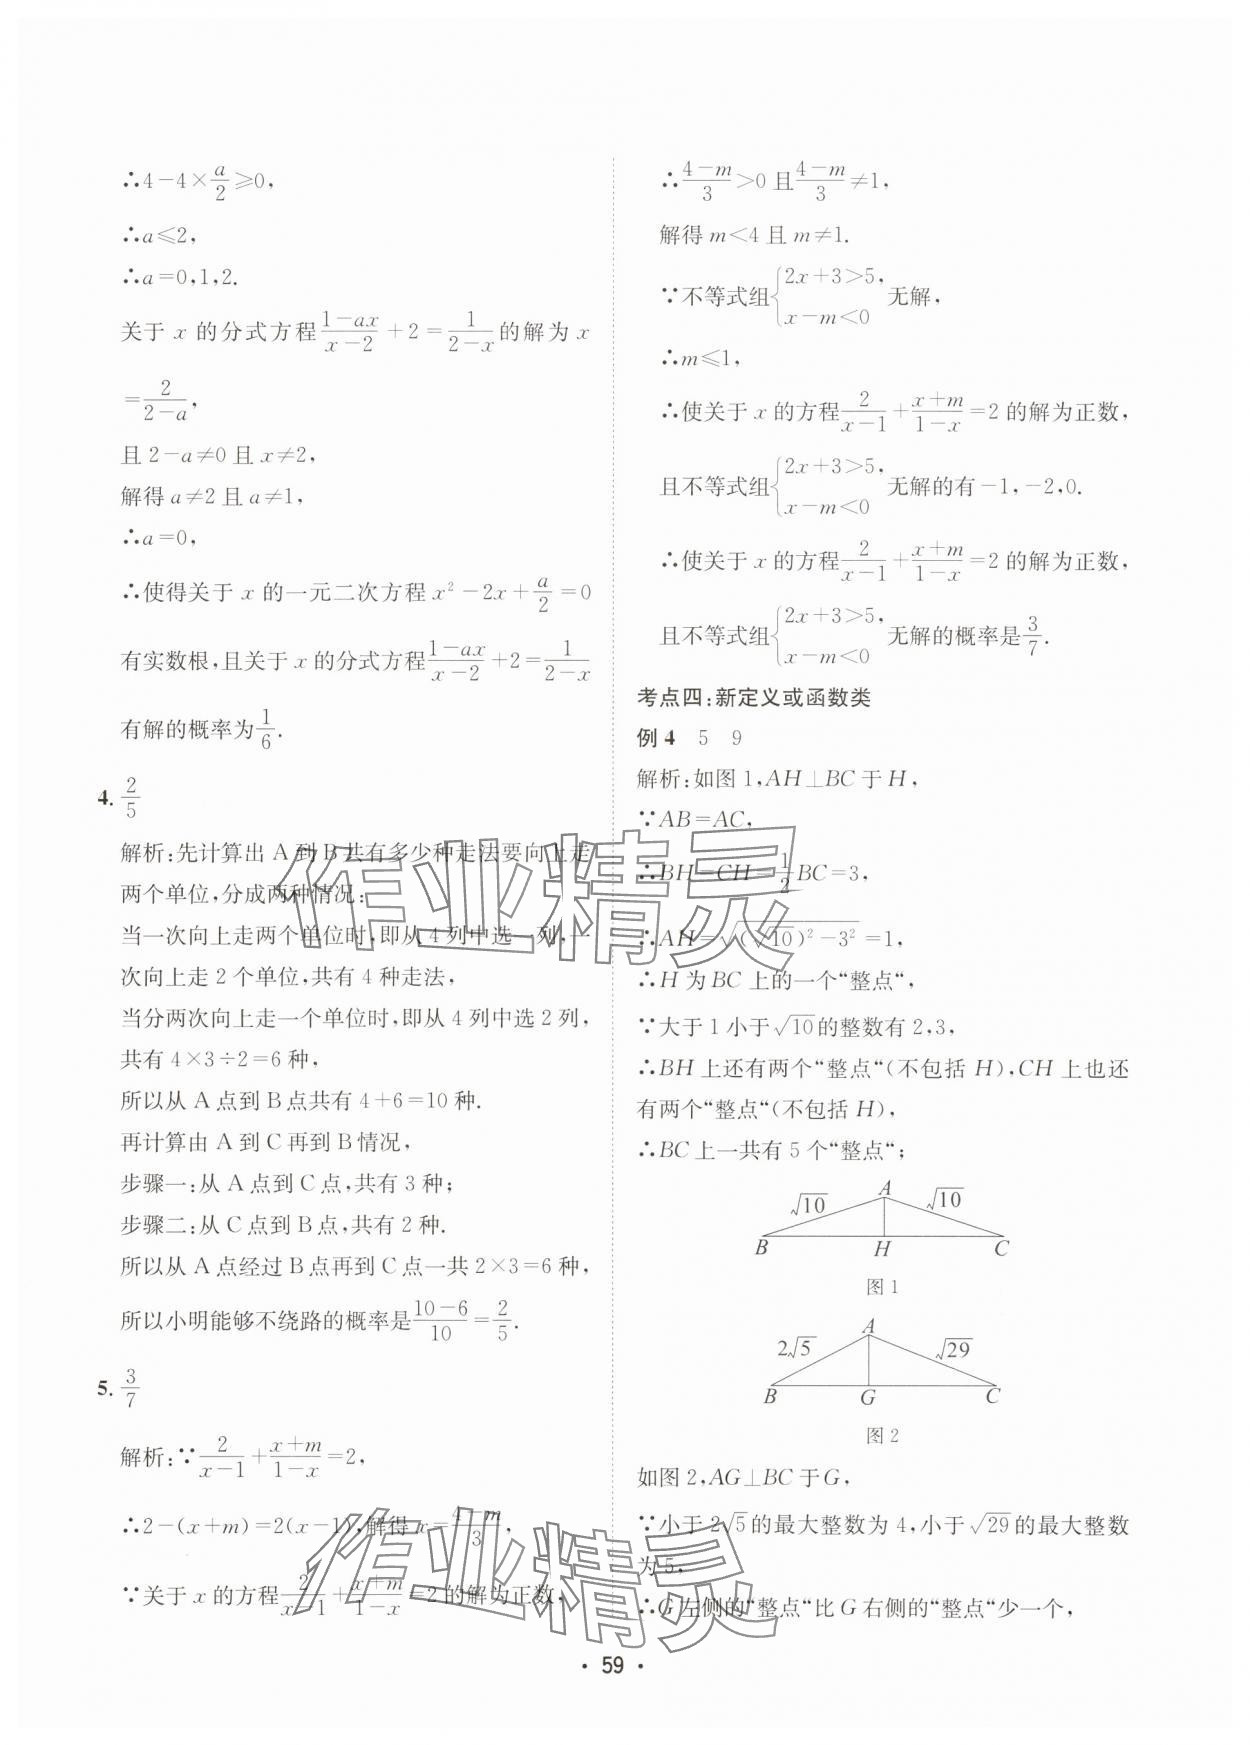 ∴4-4×a/2≥0,
∴a≤2,
∴a=0,1,2.
关于 x 的分式方程(1-ax)/(x-2)+2=1/(2-x)的解为 x
=2/(2-a),
且 2-a≠0 且 x≠2,
解得 a≠2 且 a≠1,
∴a=0,
∴使得关于 x 的一元二次方程 x²-2x+a/2=0
有实数根,且关于 x 的分式方程(1-ax)/(x-2)+2=1/(2-x)
有解的概率为1/6.
4. 2/5
解析:先计算出 A 到 B 共有多少种走法要向上走
两个单位,分成两种情况:
当一次向上走两个单位时,即从 4 列中选一列,一
次向上走 2 个单位,共有 4 种走法,
当分两次向上走一个单位时,即从 4 列中选 2 列,
共有 4×3÷2=6 种,
所以从 A 点到 B 点共有 4+6=10 种.
再计算由 A 到 C 再到 B 情况,
步骤一:从 A 点到 C 点,共有 3 种;
步骤二:从 C 点到 B 点,共有 2 种.
所以从 A 点经过 B 点再到 C 点一共 2×3=6 种,
所以小明能够不绕路的概率是(10-6)/10=2/5.
5. 3/7
解析:∵2/(x-1)+(x+m)/(1-x)=2,
∴2-(x+m)=2(x-1),解得 x=(4-m)/3,
∵关于 x 的方程2/(x-1)+(x+m)/(1-x)=2 的解为正数,
∴(4-m)/3>0 且(4-m)/3≠1,
解得 m<4 且 m≠1.
∵不等式组{2x+3>5, x-m<0 无解,
∴m≤1,
∴使关于 x 的方程2/(x-1)+(x+m)/(1-x)=2 的解为正数,
且不等式组{2x+3>5, x-m<0 无解的有-1,-2,0.
∴使关于 x 的方程2/(x-1)+(x+m)/(1-x)=2 的解为正数,
且不等式组{2x+3>5, x-m<0 无解的概率是3/7.
考点四:新定义或函数类
例 4 5 9
解析:如图 1,AH⊥BC 于 H,
∵AB=AC,
∴BH=CH=1/2BC=3,
∴AH=√((√10)²-3²)=1,
∴H 为 BC 上的一个“整点“,
∵大于 1 小于√10的整数有 2,3,
∴BH 上还有两个“整点“(不包括 H),CH 上也还
有两个“整点“(不包括 H),
∴BC 上一共有 5 个“整点“;
A
√10 √10
B H C
图 1
A
2√5 √29
B G C
图 2
如图 2,AG⊥BC 于 G,
∵小于 2√5的最大整数为 4,小于√29的最大整数
为 5,
∴G 左侧的“整点“比 G 右侧的“整点“少一个,
作业精灵
作业精灵
· 59 ·